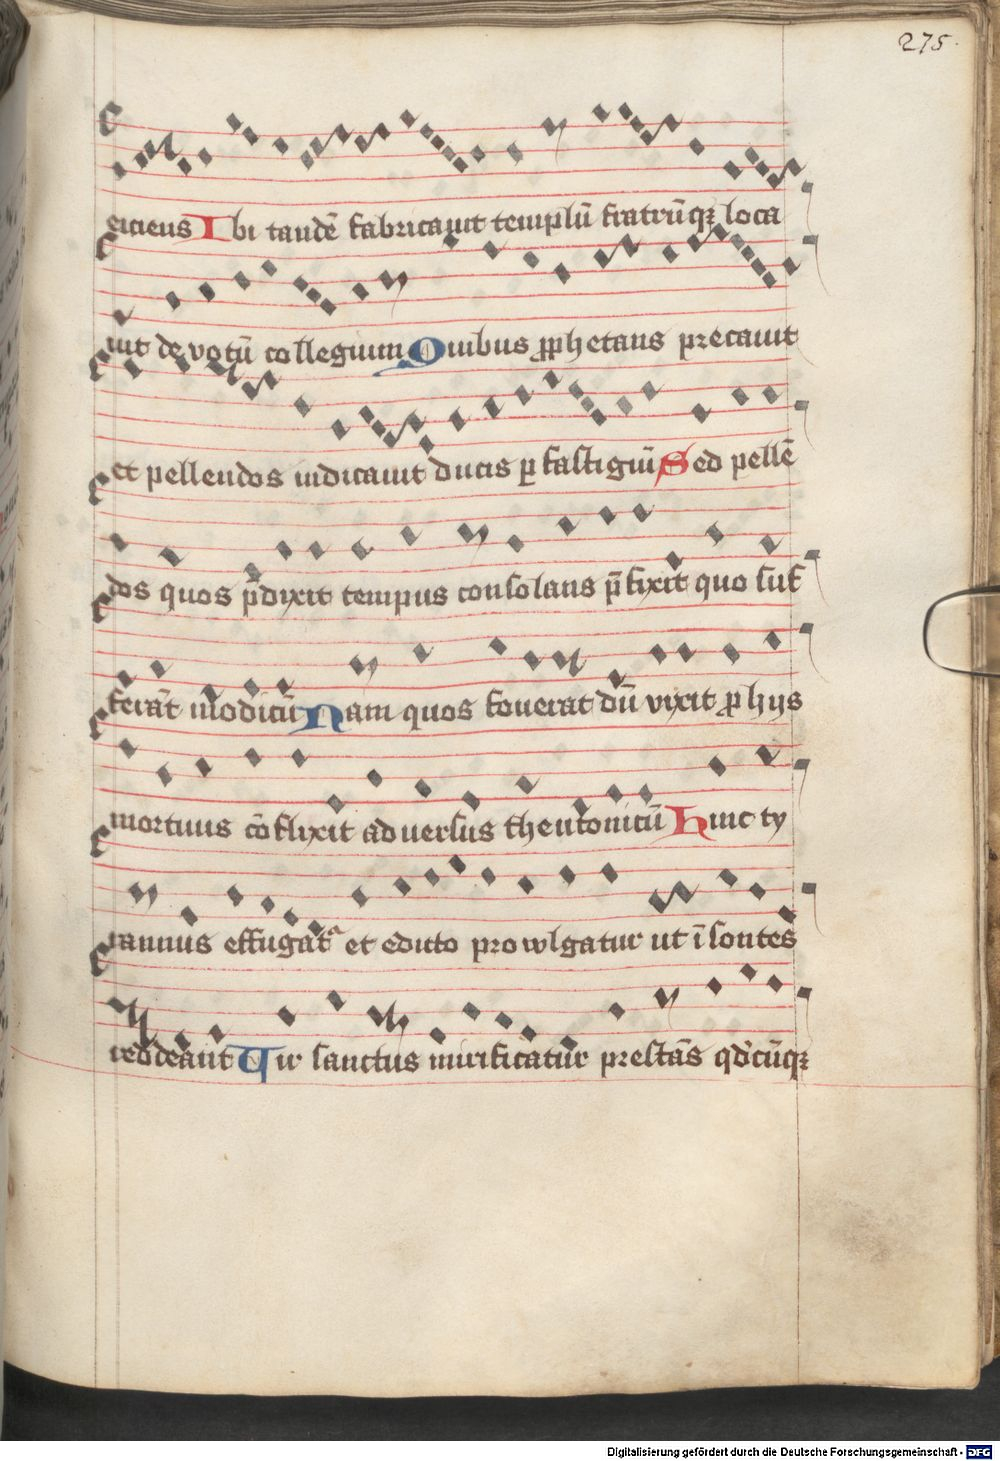 275.
eiciens Ibi tandē fabricauit templū fratrūqꝫ loca
uit deuotū collegium Quibus ꝓphetans precauit
et pellendos indicauit ducis ꝑ fastigiū Sed pellē
dos quos p̄dixit tempus consolans p̄fixit quo suf
ferāt modicū Nam quos fouerat dū vixit ꝓ hijs
mortuus cōflixit aduersus theutonicū Hinc ty
rannus effugatᷓ et edicto prowlgatur ut ī sontes
reddeant Vir sanctus mirificatur prestās qd'cūqꝫ
Digitalisierung gefördert durch die Deutsche Forschungsgemeinschaft - DFG